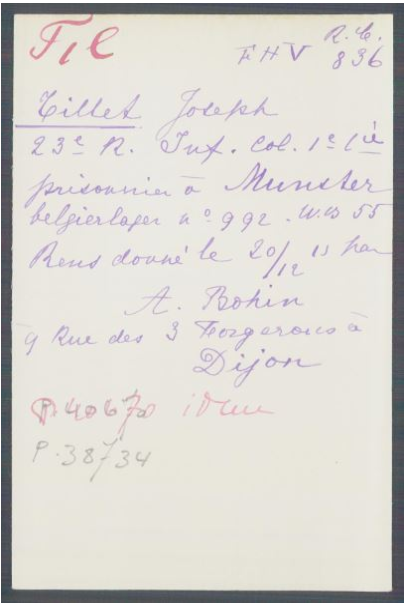 Til
R.C.
FHV 836
Tillet Joseph
23e R. Inf. Col. 1e Cie
prisonnier à Munster
belgierlager no 992. W.B 55
Rens donné le 20/12 15 par
A. Bohin
9 Rue des 3 Forgerons à
Dijon
P.40670 idem
P.38734